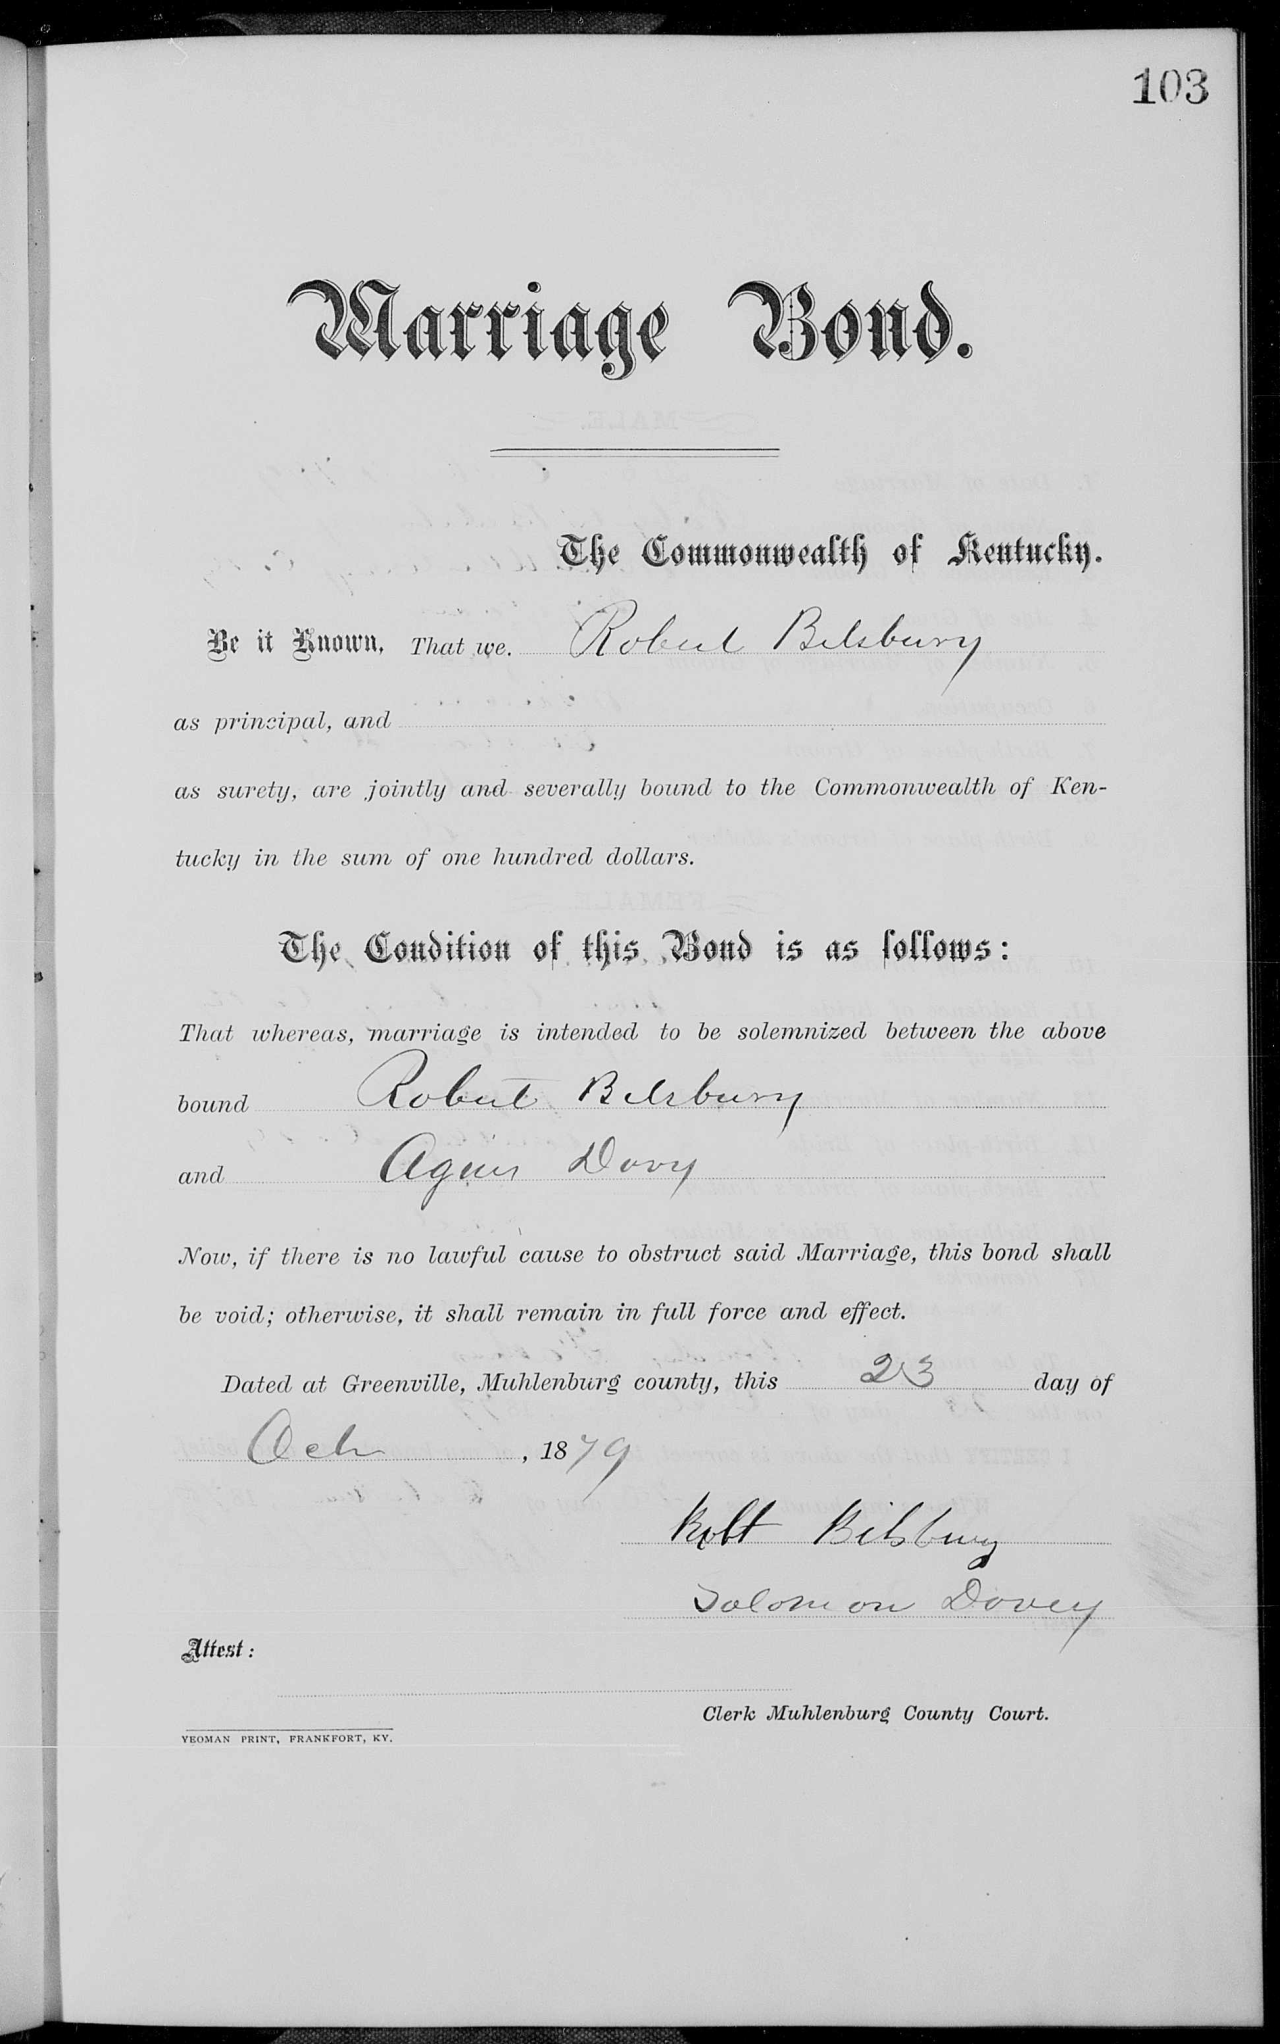 103
Marriage Bond.
The Commonwealth of Kentucky.
Be it Known, That we. Robert Bilsbury
as principal, and
as surety, are jointly and severally bound to the Commonwealth of Ken-
tucky in the sum of one hundred dollars.
The Condition of this Bond is as follows:
That whereas, marriage is intended to be solemnized between the above
bound Robert Bilsbury
and Agnes Dovy
Now, if there is no lawful cause to obstruct said Marriage, this bond shall
be void; otherwise, it shall remain in full force and effect.
Dated at Greenville, Muhlenburg county, this 23 day of
Oct, 1879
Robt Bilsbury
Solomon Dovey
Attest:
Clerk Muhlenburg County Court.
YEOMAN PRINT, FRANKFORT, KY.